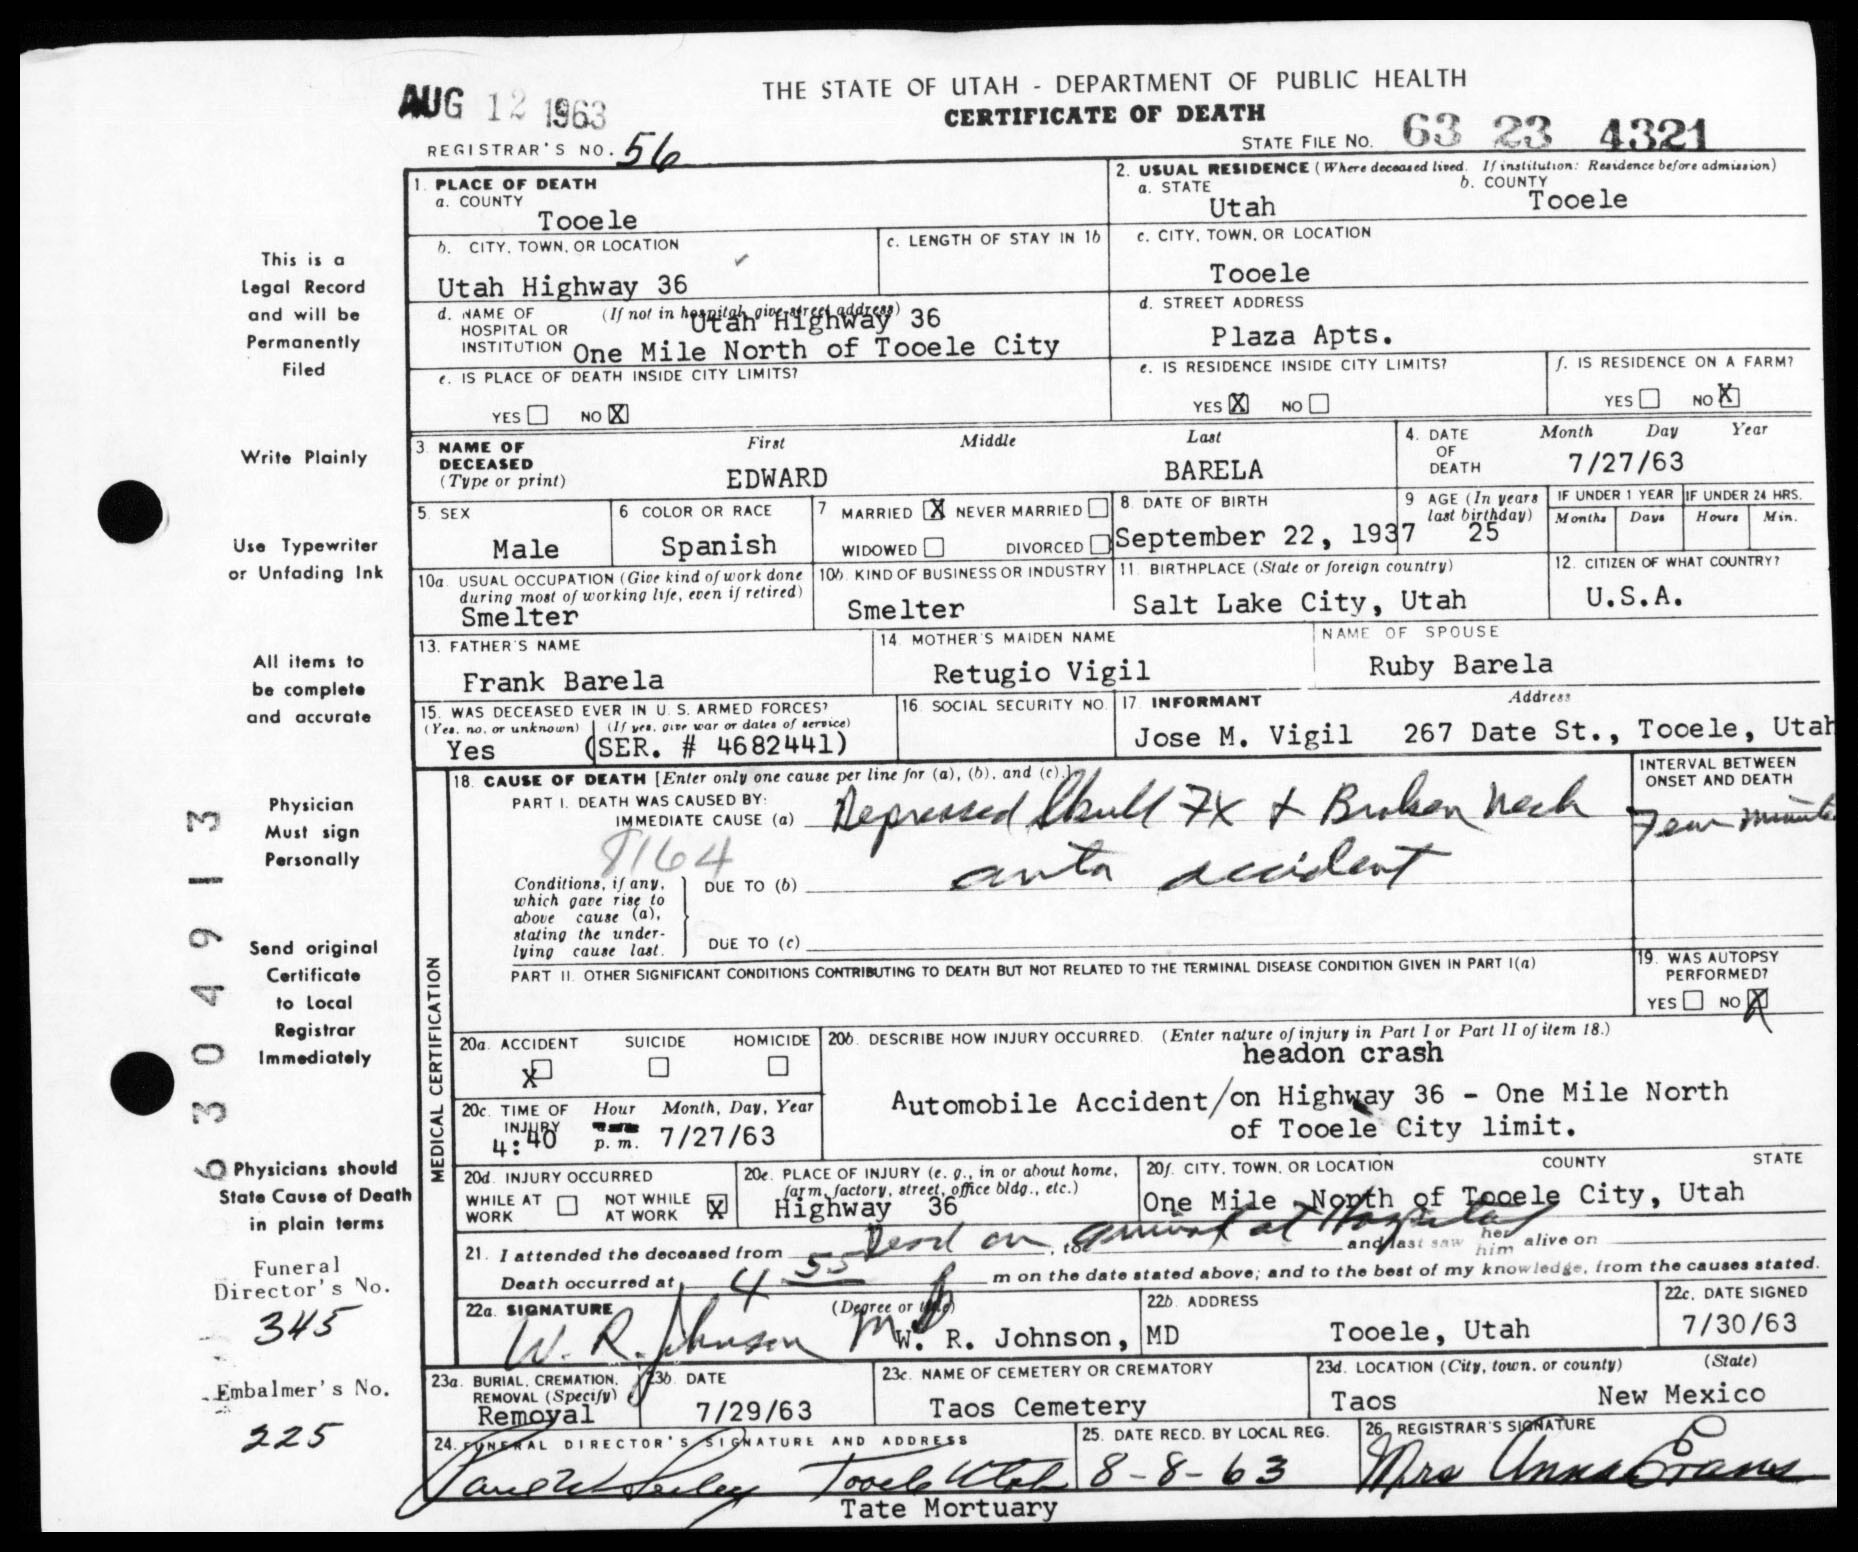 THE STATE OF UTAH - DEPARTMENT OF PUBLIC HEALTH
AUG 12 1963
CERTIFICATE OF DEATH
STATE FILE NO. 63 23 4321
REGISTRAR'S NO. 56
1. PLACE OF DEATH
a. COUNTY
Tooele
2. USUAL RESIDENCE (Where deceased lived. If institution: Residence before admission)
a. STATE
Utah
b. COUNTY
Tooele
b. CITY, TOWN, OR LOCATION
Utah Highway 36
c. LENGTH OF STAY IN 1b
c. CITY, TOWN, OR LOCATION
Tooele
d. NAME OF HOSPITAL OR INSTITUTION
(If not in hospital, give street address)
Utah Highway 36
One Mile North of Tooele City
d. STREET ADDRESS
Plaza Apts.
e. IS PLACE OF DEATH INSIDE CITY LIMITS?
YES NO X
e. IS RESIDENCE INSIDE CITY LIMITS?
YES X NO
f. IS RESIDENCE ON A FARM?
YES NO X
3. NAME OF DECEASED
(Type or print)
First Middle Last
EDWARD BARELA
4. DATE OF DEATH
Month Day Year
7/27/63
5. SEX
Male
6 COLOR OR RACE
Spanish
7 MARRIED X NEVER MARRIED
WIDOWED DIVORCED
8 DATE OF BIRTH
September 22, 1937
9 AGE (In years last birthday)
25
IF UNDER 1 YEAR
Months Days
IF UNDER 24 HRS.
Hours Min.
10a. USUAL OCCUPATION (Give kind of work done during most of working life, even if retired)
Smelter
10b. KIND OF BUSINESS OR INDUSTRY
Smelter
11. BIRTHPLACE (State or foreign country)
Salt Lake City, Utah
12. CITIZEN OF WHAT COUNTRY?
U.S.A.
13. FATHER'S NAME
Frank Barela
14. MOTHER'S MAIDEN NAME
Retugio Vigil
NAME OF SPOUSE
Ruby Barela
15. WAS DECEASED EVER IN U. S. ARMED FORCES?
(Yes, no, or unknown) (If yes, give war or dates of service)
Yes (SER. # 4682441)
16. SOCIAL SECURITY NO.
17. INFORMANT Address
Jose M. Vigil 267 Date St., Tooele, Utah
MEDICAL CERTIFICATION
18. CAUSE OF DEATH [Enter only one cause per line for (a), (b), and (c).]
PART I. DEATH WAS CAUSED BY:
IMMEDIATE CAUSE (a) Depressed Skull FX + Broken Neck
INTERVAL BETWEEN ONSET AND DEATH
Few minutes
8164
Conditions, if any, which gave rise to above cause (a), stating the underlying cause last.
DUE TO (b) auto accident
DUE TO (c)
PART II. OTHER SIGNIFICANT CONDITIONS CONTRIBUTING TO DEATH BUT NOT RELATED TO THE TERMINAL DISEASE CONDITION GIVEN IN PART I(a)
19. WAS AUTOPSY PERFORMED?
YES NO X
20a. ACCIDENT SUICIDE HOMICIDE
X
20b. DESCRIBE HOW INJURY OCCURRED. (Enter nature of injury in Part I or Part II of item 18.)
headon crash
Automobile Accident/on Highway 36 - One Mile North
of Tooele City limit.
20c. TIME OF INJURY Hour Month, Day, Year
4:40 p. m. 7/27/63
20d. INJURY OCCURRED
WHILE AT WORK NOT WHILE AT WORK X
20e. PLACE OF INJURY (e. g., in or about home, farm, factory, street, office bldg., etc.)
Highway 36
20f. CITY, TOWN, OR LOCATION COUNTY STATE
One Mile North of Tooele City, Utah
21. I attended the deceased from Dead on arrival at Hospital, to and last saw her him alive on
Death occurred at 4 55 P m on the date stated above; and to the best of my knowledge, from the causes stated.
22a. SIGNATURE (Degree or title)
W. R. Johnson MD
W. R. Johnson, MD
22b. ADDRESS
Tooele, Utah
22c. DATE SIGNED
7/30/63
23a. BURIAL, CREMATION, REMOVAL (Specify)
Removal
23b. DATE
7/29/63
23c. NAME OF CEMETERY OR CREMATORY
Taos Cemetery
23d. LOCATION (City, town, or county) (State)
Taos New Mexico
24. FUNERAL DIRECTOR'S SIGNATURE AND ADDRESS
Tooele Utah
Tate Mortuary
25. DATE RECD. BY LOCAL REG.
8-8-63
26. REGISTRAR'S SIGNATURE
Mrs Anna Evans
This is a
Legal Record
and will be
Permanently
Filed
Write Plainly
Use Typewriter
or Unfading Ink
All items to
be complete
and accurate
Physician
Must sign
Personally
Send original
Certificate
to Local
Registrar
Immediately
Physicians should
State Cause of Death
in plain terms
Funeral
Director's No.
345
Embalmer's No.
225
6304913